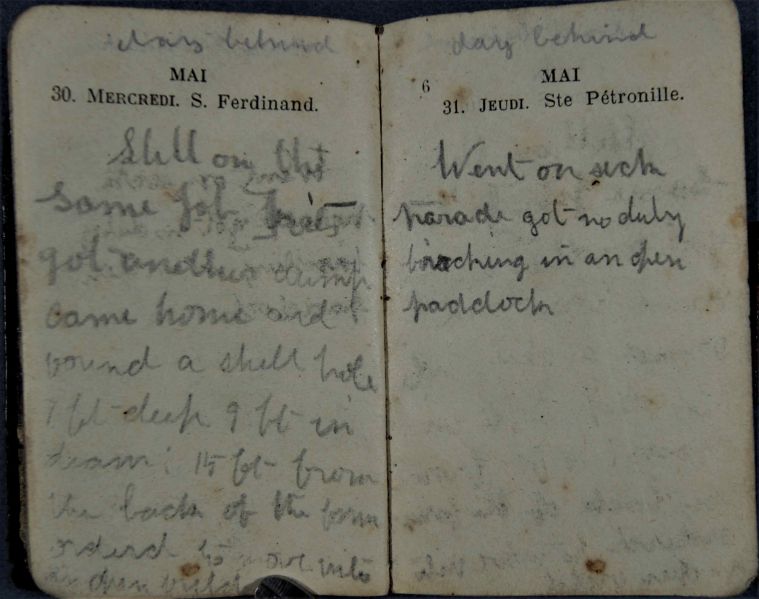 days behind
MAI
30. MERCREDI. S. Ferdinand.
Still on the
same job Fritz
got another dump
came home and
vound a shell hole
7 ft deep 9 ft in
diam: 15 ft from
the back of the farm
orderd to move into
an open field
days behind
6
MAI
31. JEUDI. Ste Pétronille.
Went on sick
parade got no duty
in an open
paddock